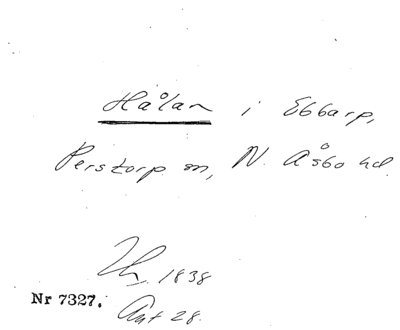 Hålan i Ebbarp,
Perstorp sn, N. Åsbo hd.
1838
Nr 7327.
Akt 28.